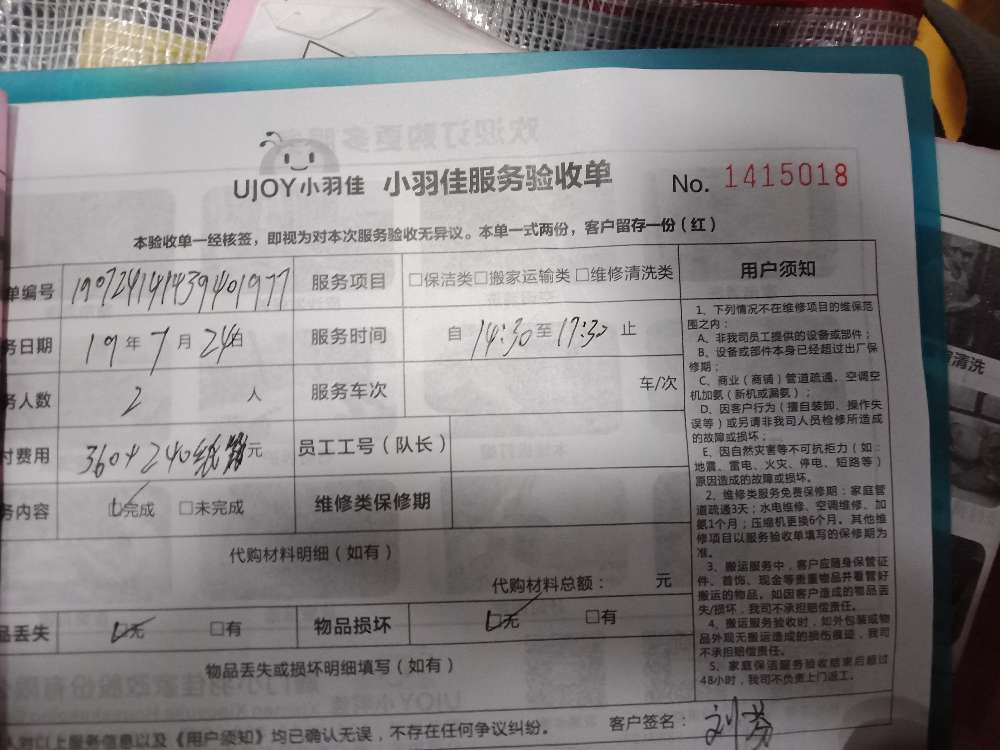 UJOY小羽佳 小羽佳服务验收单 No. 1415018
本验收单一经核签，即视为对本次服务验收无异议。本单一式两份，客户留存一份（红）
单编号 190724141439401977 服务项目 □保洁类□搬家运输类□维修清洗类
务日期 19年7月24日 服务时间 自 14:30 至 17:30 止
务人数 2 人 服务车次 车/次
付费用 360+240 元 员工工号（队长）
务内容 □完成 □未完成 维修类保修期
代购材料明细（如有）
代购材料总额： 元
品丢失 □无 □有 物品损坏 □无 □有
物品丢失或损坏明细填写（如有）
以上服务信息以及《用户须知》均已确认无误，不存在任何争议纠纷。 客户签名：刘芬
用户须知
1、下列情况不在维修项目的维保范
围之内：
A、非我司员工提供的设备或部件；
B、设备或部件本身已经超过出厂保
修期；
C、商业（商铺）管道疏通、空调空
机加氨（新机或漏氨）；
D、因客户行为（擅自装卸、操作失
误等）或另请非我司人员检修所造成
的故障或损坏；
E、因自然灾害等不可抗拒力（如：
地震、雷电、火灾、停电、短路等）
原因造成的故障或损坏。
2、维修类服务免费保修期：家庭管
道疏通3天；水电维修、空调维修、加
氨1个月；压缩机更换6个月。其他维
修项目以服务验收单填写的保修期为
准。
3、搬运服务中，客户应随身保管证
件、首饰、现金等贵重物品并看管好
搬运的物品。如因客户造成的物品丢
失/损坏，我司不承担赔偿责任。
4、搬运服务验收时，如外包装或物
品外观无搬运造成的损伤痕迹，我司
不承担赔偿责任。
5、家庭保洁服务验收结束后超过
48小时，我司不负责上门返工。
清洗